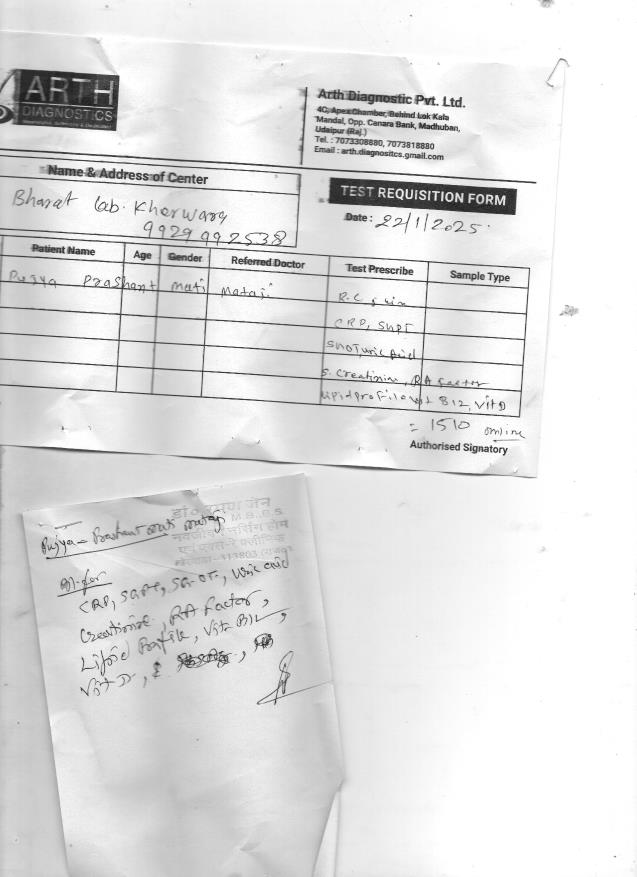 ARTH
DIAGNOSTICS
Arth Diagnostic Pvt. Ltd.
4C, Apex Chamber, Behind Lok Kala
Mandal, Opp. Canara Bank, Madhuban,
Udaipur (Raj.)
Tel. : 7073308880, 7073818880
Email : arth.diagnositcs.gmail.com
Name & Address of Center
TEST REQUISITION FORM
Bharat Lab. Kherwara
9929992538
Date : 22/1/2025
Patient Name Age Gender Referred Doctor Test Prescribe Sample Type
Pujya Prashant Mati Mataji
CRP, SGPT
SGOT Uric Acid
S. Creatinine, RA factor
Lipid profile Vit B12, Vit D
= 1510 online
Authorised Signatory
डॉ० जैन
M.B.,B.S.
नवजीवन नर्सिंग होम
Pujya Prashant Mati Mataji
CRP, SGPT, SGOT, Uric acid
Creatinine, RA Factor,
Lipid Profile, Vit B12,
Vit D,